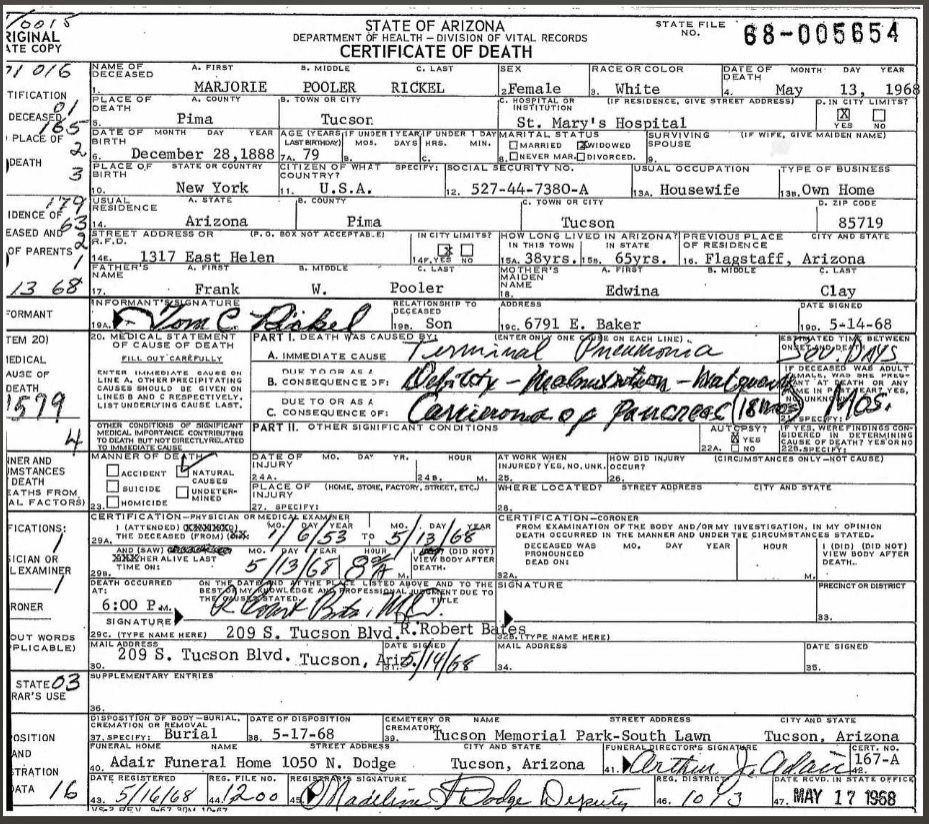 10015
RIGINAL
ATE COPY
STATE OF ARIZONA
DEPARTMENT OF HEALTH — DIVISION OF VITAL RECORDS
CERTIFICATE OF DEATH
STATE FILE NO. 68-005654
NAME OF DECEASED A. FIRST B. MIDDLE C. LAST SEX RACE OR COLOR DATE OF DEATH MONTH DAY YEAR
1. MARJORIE POOLER RICKEL 2. Female 3. White 4. May 13, 1968
PLACE OF DEATH A. COUNTY B. TOWN OR CITY C. HOSPITAL OR INSTITUTION (IF RESIDENCE, GIVE STREET ADDRESS) D. IN CITY LIMITS?
5. Pima Tucson St. Mary's Hospital X YES NO
DATE OF BIRTH MONTH DAY YEAR AGE (YEARS LAST BIRTHDAY) IF UNDER 1 YEAR MOS. DAYS IF UNDER 1 DAY HRS. MIN. MARITAL STATUS SURVIVING SPOUSE (IF WIFE, GIVE MAIDEN NAME)
6. December 28,1888 7A. 79 B. C. 8. MARRIED X WIDOWED NEVER MAR. DIVORCED. 9.
PLACE OF BIRTH STATE OR COUNTRY CITIZEN OF WHAT COUNTRY? SPECIFY: SOCIAL SECURITY NO. USUAL OCCUPATION TYPE OF BUSINESS
10. New York 11. U.S.A. 12. 527-44-7380-A 13A. Housewife 13B. Own Home
USUAL RESIDENCE A. STATE B. COUNTY C. TOWN OR CITY D. ZIP CODE
14. Arizona Pima Tucson 85719
STREET ADDRESS OR R.F.D. (P.O. BOX NOT ACCEPTABLE) IN CITY LIMITS? HOW LONG LIVED IN ARIZONA? IN THIS TOWN IN STATE PREVIOUS PLACE OF RESIDENCE CITY AND STATE
14E. 1317 East Helen 14F. YES X NO 15A. 38yrs. 15B. 65yrs. 16. Flagstaff, Arizona
FATHER'S NAME A. FIRST B. MIDDLE C. LAST MOTHER'S MAIDEN NAME A. FIRST B. MIDDLE C. LAST
17. Frank W. Pooler 18. Edwina Clay
INFORMANT'S SIGNATURE RELATIONSHIP TO DECEASED ADDRESS DATE SIGNED
19A. Tom C. Rickel 19B. Son 19C. 6791 E. Baker 19D. 5-14-68
20. MEDICAL STATEMENT OF CAUSE OF DEATH PART I. DEATH WAS CAUSED BY: (ENTER ONLY ONE CAUSE ON EACH LINE) ESTIMATED TIME BETWEEN ONSET AND DEATH
FILL OUT CAREFULLY A. IMMEDIATE CAUSE Terminal Pneumonia DAYS
ENTER IMMEDIATE CAUSE ON LINE A. OTHER PRECIPITATING CAUSES SHOULD BE GIVEN ON LINES B AND C RESPECTIVELY, LIST UNDERLYING CAUSE LAST.
DUE TO OR AS A B. CONSEQUENCE OF: Debility - Malnutrition - Malignancy
DUE TO OR AS A C. CONSEQUENCE OF: Carcinoma of Pancreas (18 mos) MOS.
OTHER CONDITIONS OF SIGNIFICANT MEDICAL IMPORTANCE CONTRIBUTING TO DEATH BUT NOT DIRECTLY RELATED TO IMMEDIATE CAUSE
PART II. OTHER SIGNIFICANT CONDITIONS AUTOPSY? X YES 22A. NO IF YES, WERE FINDINGS CONSIDERED IN DETERMINING CAUSE OF DEATH? YES OR NO 22B. SPECIFY:
MANNER OF DEATH DATE OF INJURY MO. DAY YR. HOUR AT WORK WHEN INJURED? YES, NO, UNK. HOW DID INJURY OCCUR? (CIRCUMSTANCES ONLY—NOT CAUSE)
ACCIDENT NATURAL CAUSES 24A. 24B. M. 25. 26.
SUICIDE UNDETERMINED PLACE OF INJURY (HOME, STORE, FACTORY, STREET, ETC.) WHERE LOCATED? STREET ADDRESS CITY AND STATE
23. HOMICIDE 27. SPECIFY: 28.
CERTIFICATION—PHYSICIAN OR MEDICAL EXAMINER CERTIFICATION—CORONER
29A. I (ATTENDED) THE DECEASED (FROM) MO. DAY YEAR 1/6/53 TO MO. DAY YEAR 5/13/68
FROM EXAMINATION OF THE BODY AND/OR MY INVESTIGATION, IN MY OPINION DEATH OCCURRED IN THE MANNER AND UNDER THE CIRCUMSTANCES STATED.
29B. AND (SAW) HER ALIVE LAST TIME ON: MO. DAY YEAR 5/13/68 HOUR 8 A M. (DID NOT) VIEW BODY AFTER DEATH.
32A. DECEASED WAS PRONOUNCED DEAD ON: MO. DAY YEAR HOUR M. I (DID) (DID NOT) VIEW BODY AFTER DEATH.
DEATH OCCURRED AT: ON THE DATE AND AT THE PLACE LISTED ABOVE AND TO THE BEST OF MY KNOWLEDGE AND PROFESSIONAL JUDGMENT DUE TO THE CAUSES STATED. TITLE SIGNATURE PRECINCT OR DISTRICT
6:00 P.M. SIGNATURE R Robert Bates, M.D. 33.
29C. (TYPE NAME HERE) 209 S. Tucson Blvd. Dr. R. Robert Bates 32B. (TYPE NAME HERE)
MAIL ADDRESS DATE SIGNED MAIL ADDRESS DATE SIGNED
30. 209 S. Tucson Blvd. Tucson, Ariz. 31. 5/14/68 34. 35.
SUPPLEMENTARY ENTRIES
36.
DISPOSITION OF BODY—BURIAL, CREMATION OR REMOVAL DATE OF DISPOSITION CEMETERY OR CREMATORY NAME STREET ADDRESS CITY AND STATE
37. SPECIFY: Burial 38. 5-17-68 39. Tucson Memorial Park-South Lawn Tucson, Arizona
FUNERAL HOME NAME STREET ADDRESS CITY AND STATE FUNERAL DIRECTOR'S SIGNATURE CERT. NO.
40. Adair Funeral Home 1050 N. Dodge Tucson, Arizona 41. Arthur J. Adair 167-A
DATE REGISTERED REG. FILE NO. REGISTRAR'S SIGNATURE REG. DISTRICT DATE RCVD. IN STATE OFFICE
43. 5/16/68 44. 1200 45. Madeline F Dodge Deputy 46. 1013 47. MAY 17 1968